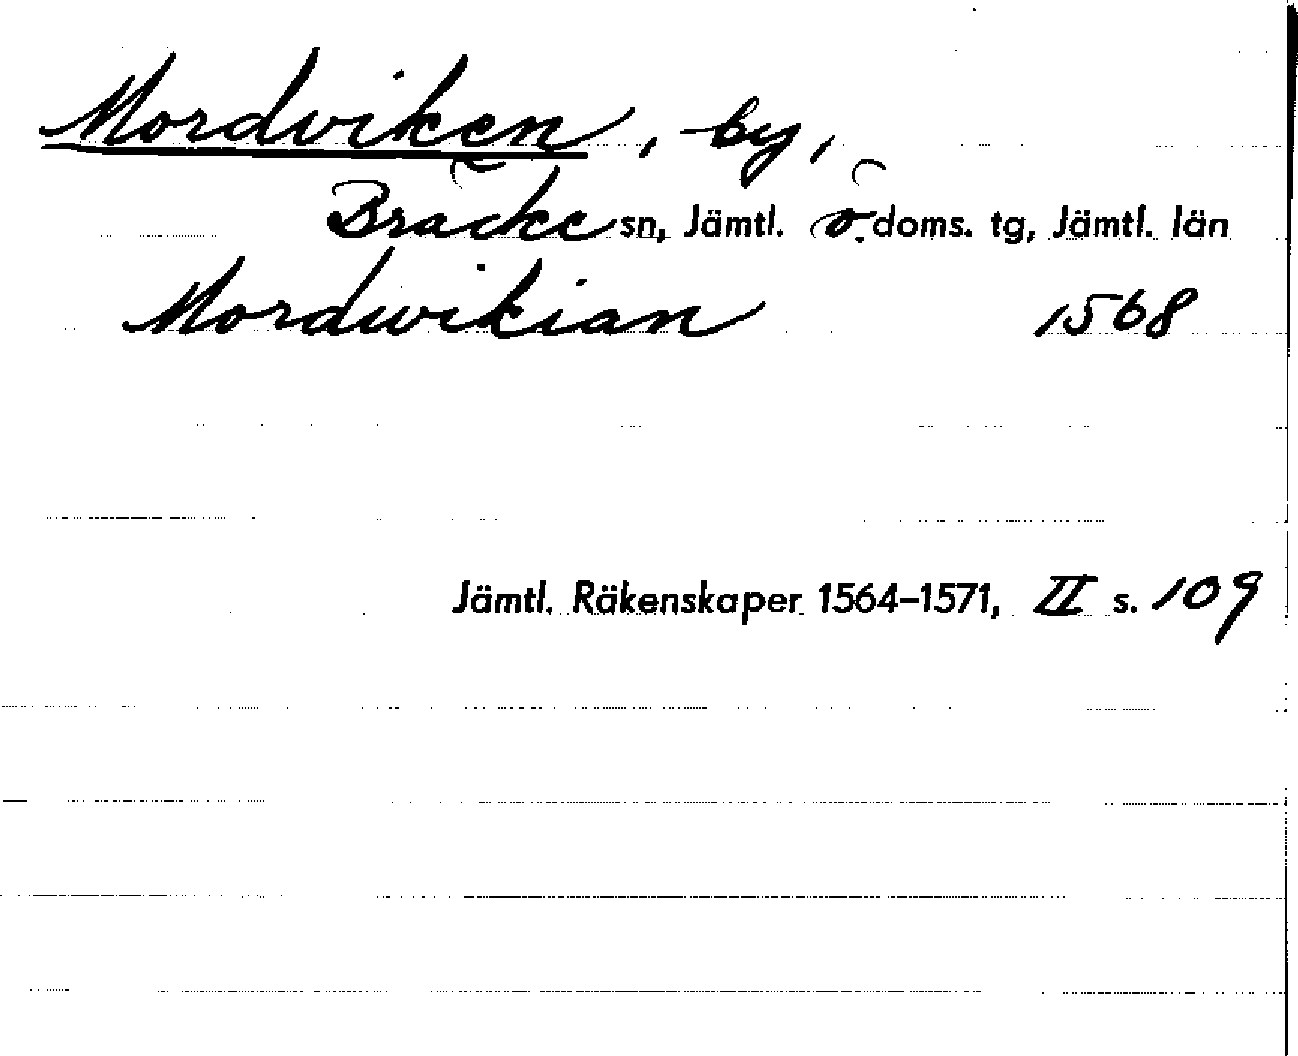 Mordviken, by,
Bräcke sn, Jämtl. ö. doms. tg, Jämtl. län
Mordwikian 1568
Jämtl. Räkenskaper 1564–1571, II s. 109